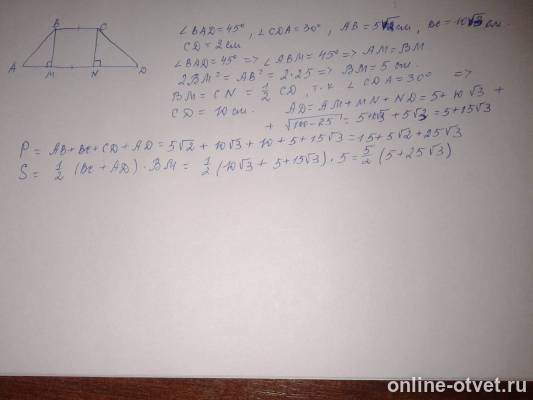 B C
A M N D
∠BAD = 45°, ∠CDA = 30°, AB = 5√2 см, BC = 10√3 см.
CD = 2 см
∠BAD = 45° => ∠ABM = 45° => AM = BM
2BM² = AB² = 2·25 => BM = 5 см.
BM = CN = 1/2 CD, т.к. ∠CDA = 30° =>
CD = 10 см. AD = AM + MN + ND = 5 + 10√3 +
+ √(100-25) = 5 + 10√3 + 5√3 = 5 + 15√3
P = AB + BC + CD + AD = 5√2 + 10√3 + 10 + 5 + 15√3 = 15 + 5√2 + 25√3
S = 1/2 (BC + AD) · BM = 1/2 (10√3 + 5 + 15√3) · 5 = 5/2 (5 + 25√3)
online-otvet.ru